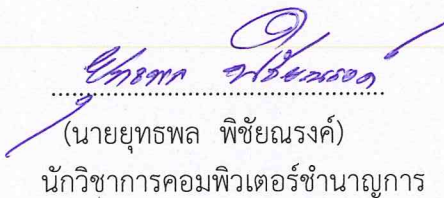 ยุทธพล พิชัยณรงค์
(นายยุทธพล พิชัยณรงค์)
นักวิชาการคอมพิวเตอร์ชำนาญการ